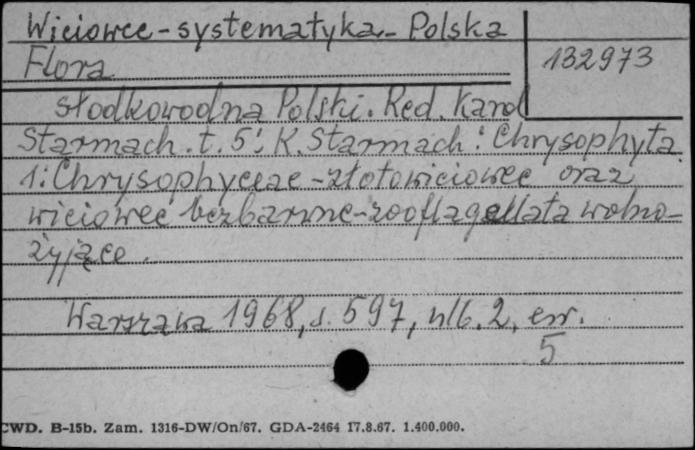 Wiciowce - systematyka - Polska
132973
Flora
słodkowodna Polski. Red. Karol
Starmach. t. 5: K. Starmach: Chrysophyta
1: Chrysophyceae - złotowiciowce oraz
wiciowce bezbarwne - zooflagellata wolno-
żyjące.
Warszawa 1968, s. 597, nlb. 2, err.
5
CWD. B-15b. Zam. 1316-DW/On/67. GDA-2464 17.8.67. 1.400.000.